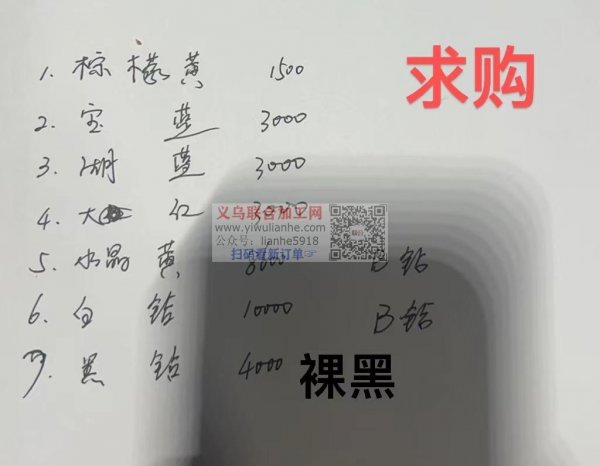 求购
1. 棕檬黄 1500
2. 宝蓝 3000
3. 湖蓝 3000
4. 大红 3000
义乌联合加工网
www.yiwulianhe.com
公众号: lianhe5918
扫码看新订单☞
5. 水晶黄 B钻
6. 白钻 10000 B钻
7. 黑钻 4000 裸黑